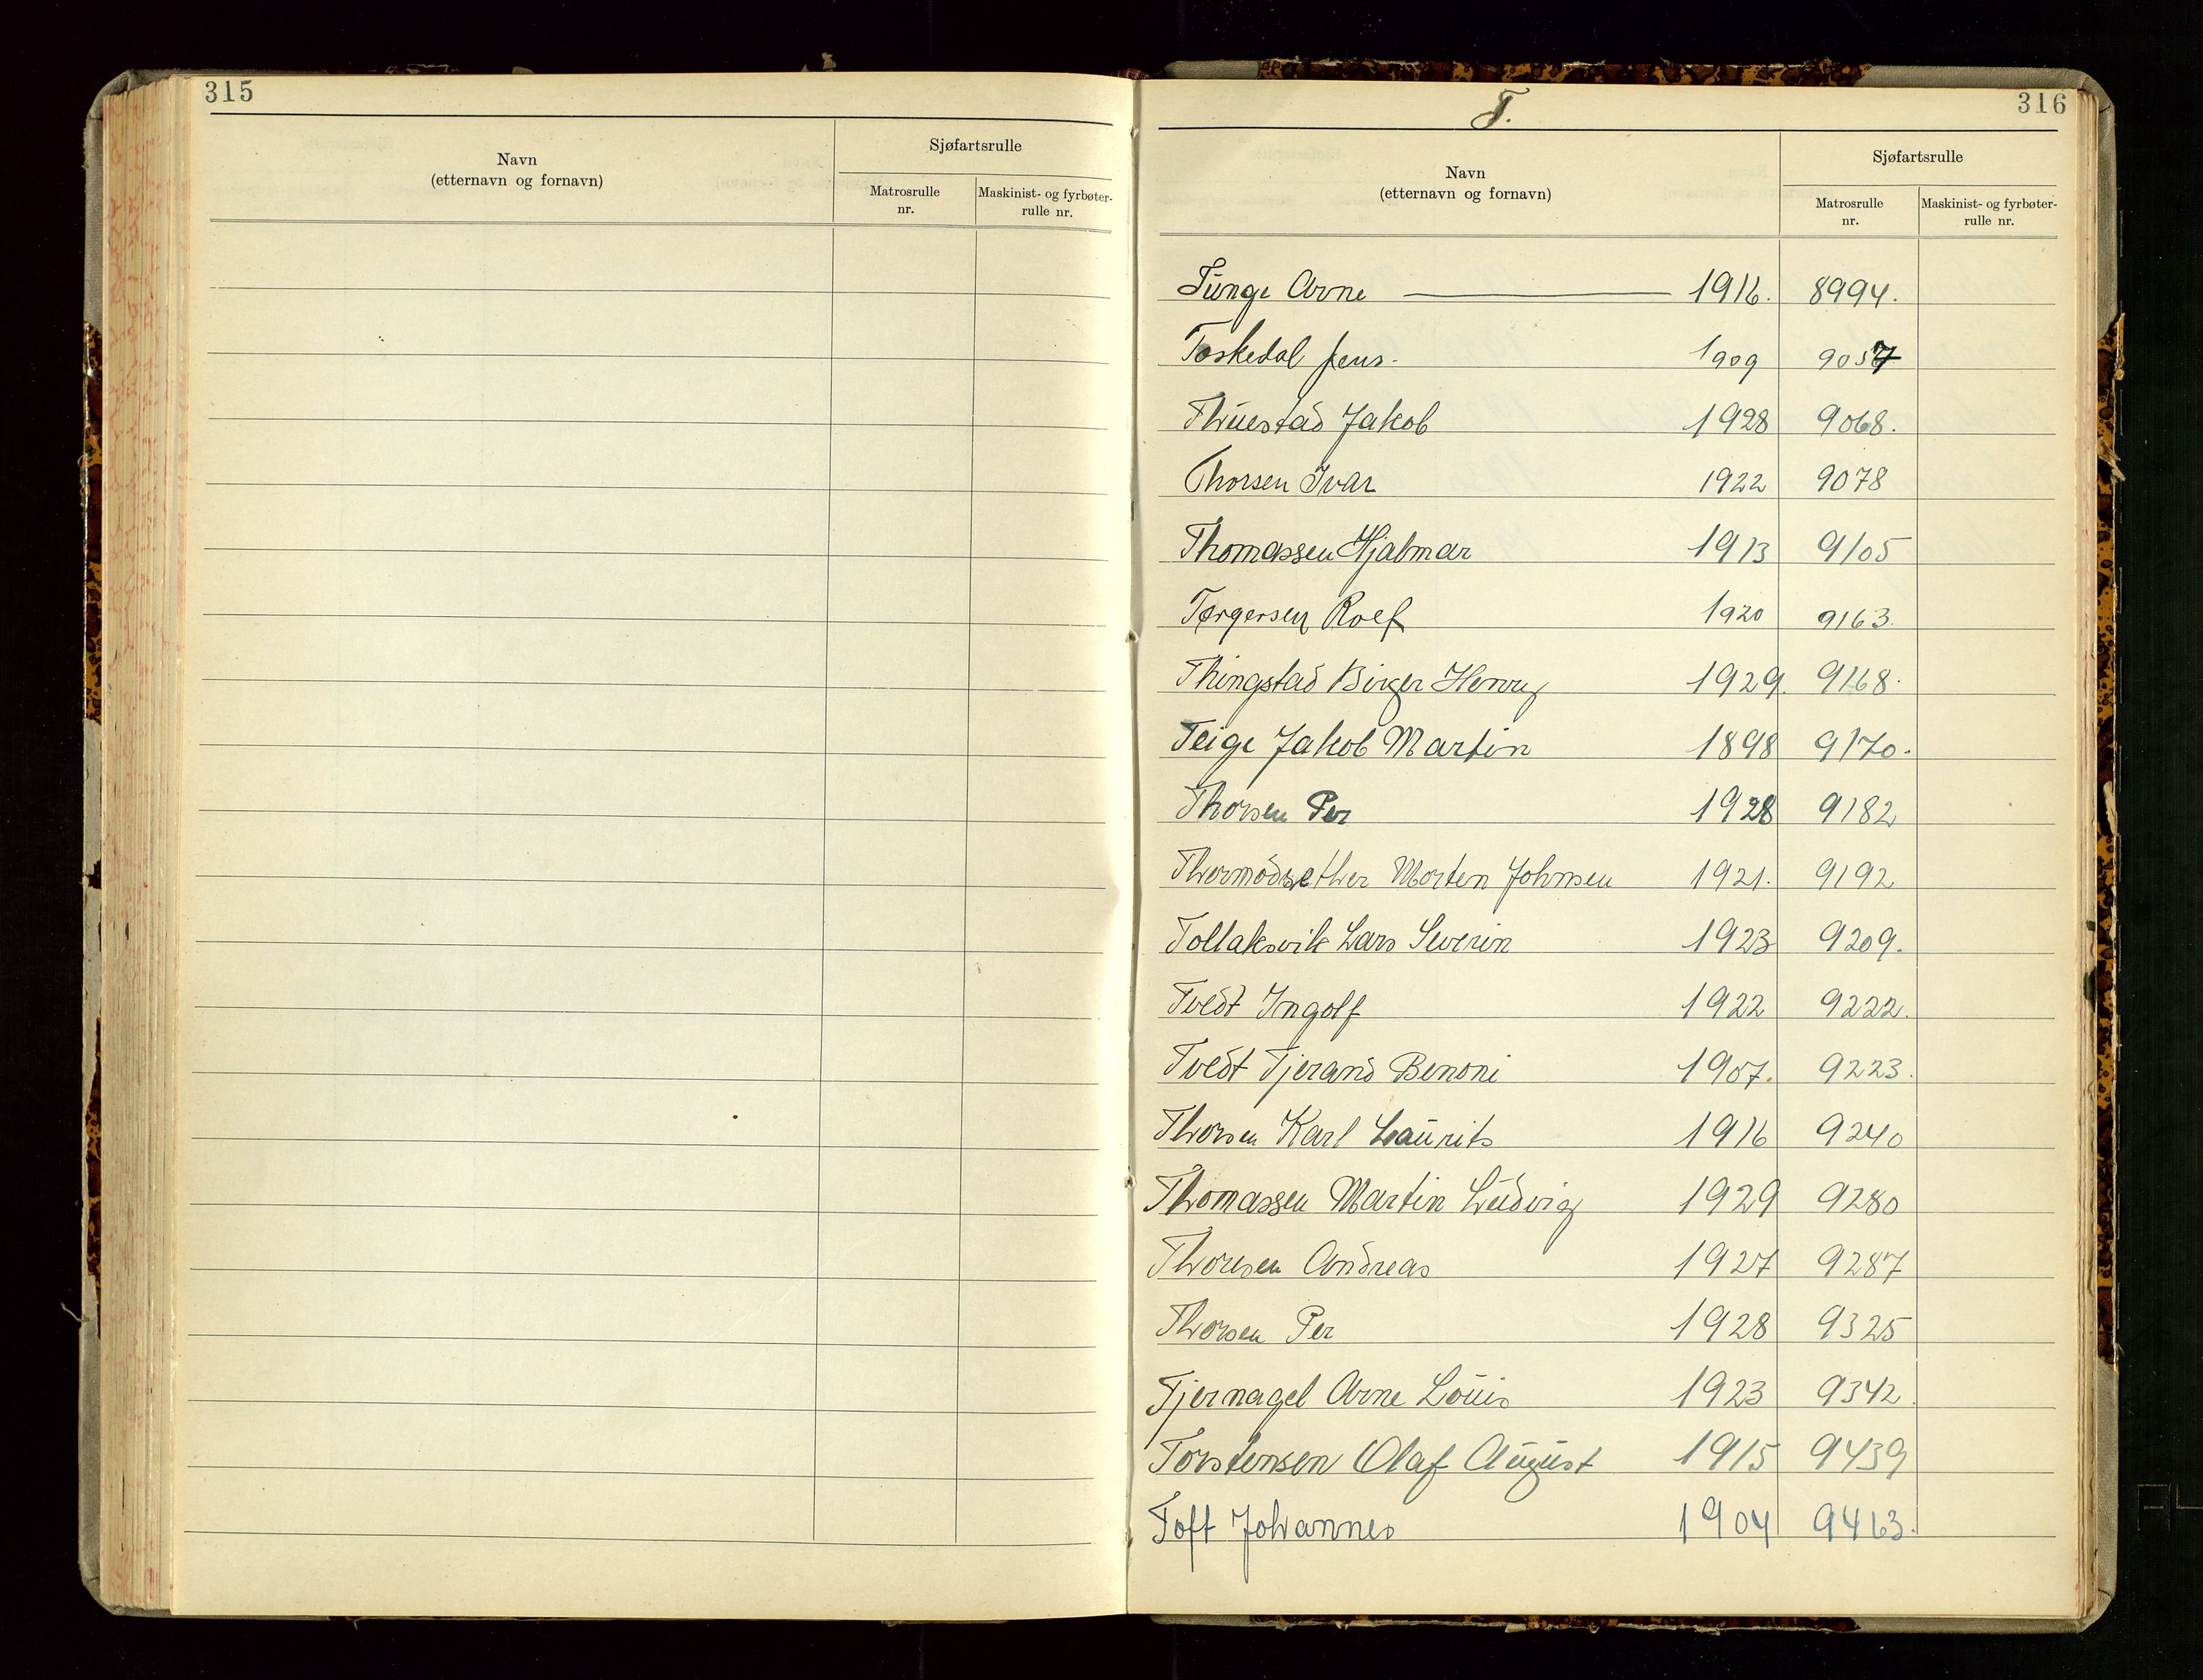 315
Navn
(etternavn og fornavn)
Sjøfartsrulle
Matrosrulle
nr.
Maskinist- og fyrbøter-
rulle nr.
T.
316
Navn
(etternavn og fornavn)
Sjøfartsrulle
Matrosrulle
nr.
Maskinist- og fyrbøter-
rulle nr.
Tunge Arne — 1916. 8994.
Toskedal Jens. 1909 9057
Thuestad Jakob 1928 9068.
Thorsen Ivar 1922 9078
Thomassen Hjalmar 1913 9105
Torgersen Rolf 1920 9163.
Thingstad Birger Henry 1929. 9168.
Teige Jakob Martin 1898 9170.
Thorsen Per 1928 9182
Thormodsæther Morten Johnsen 1921. 9192
Tollaksvik Lars Severin 1923 9209.
Tvedt Ingolf 1922 9222.
Tvedt Tjerand Benoni 1907. 9223.
Thorsen Karl Laurits 1916 9240
Thomassen Martin Ludvig 1929 9280
Thoresen Andreas 1927 9287
Thorsen Per 1928 9325
Tjernagel Arne Louis 1923 9342.
Torstensen Olaf August 1915 9439
Toft Johannes 1904 9463.